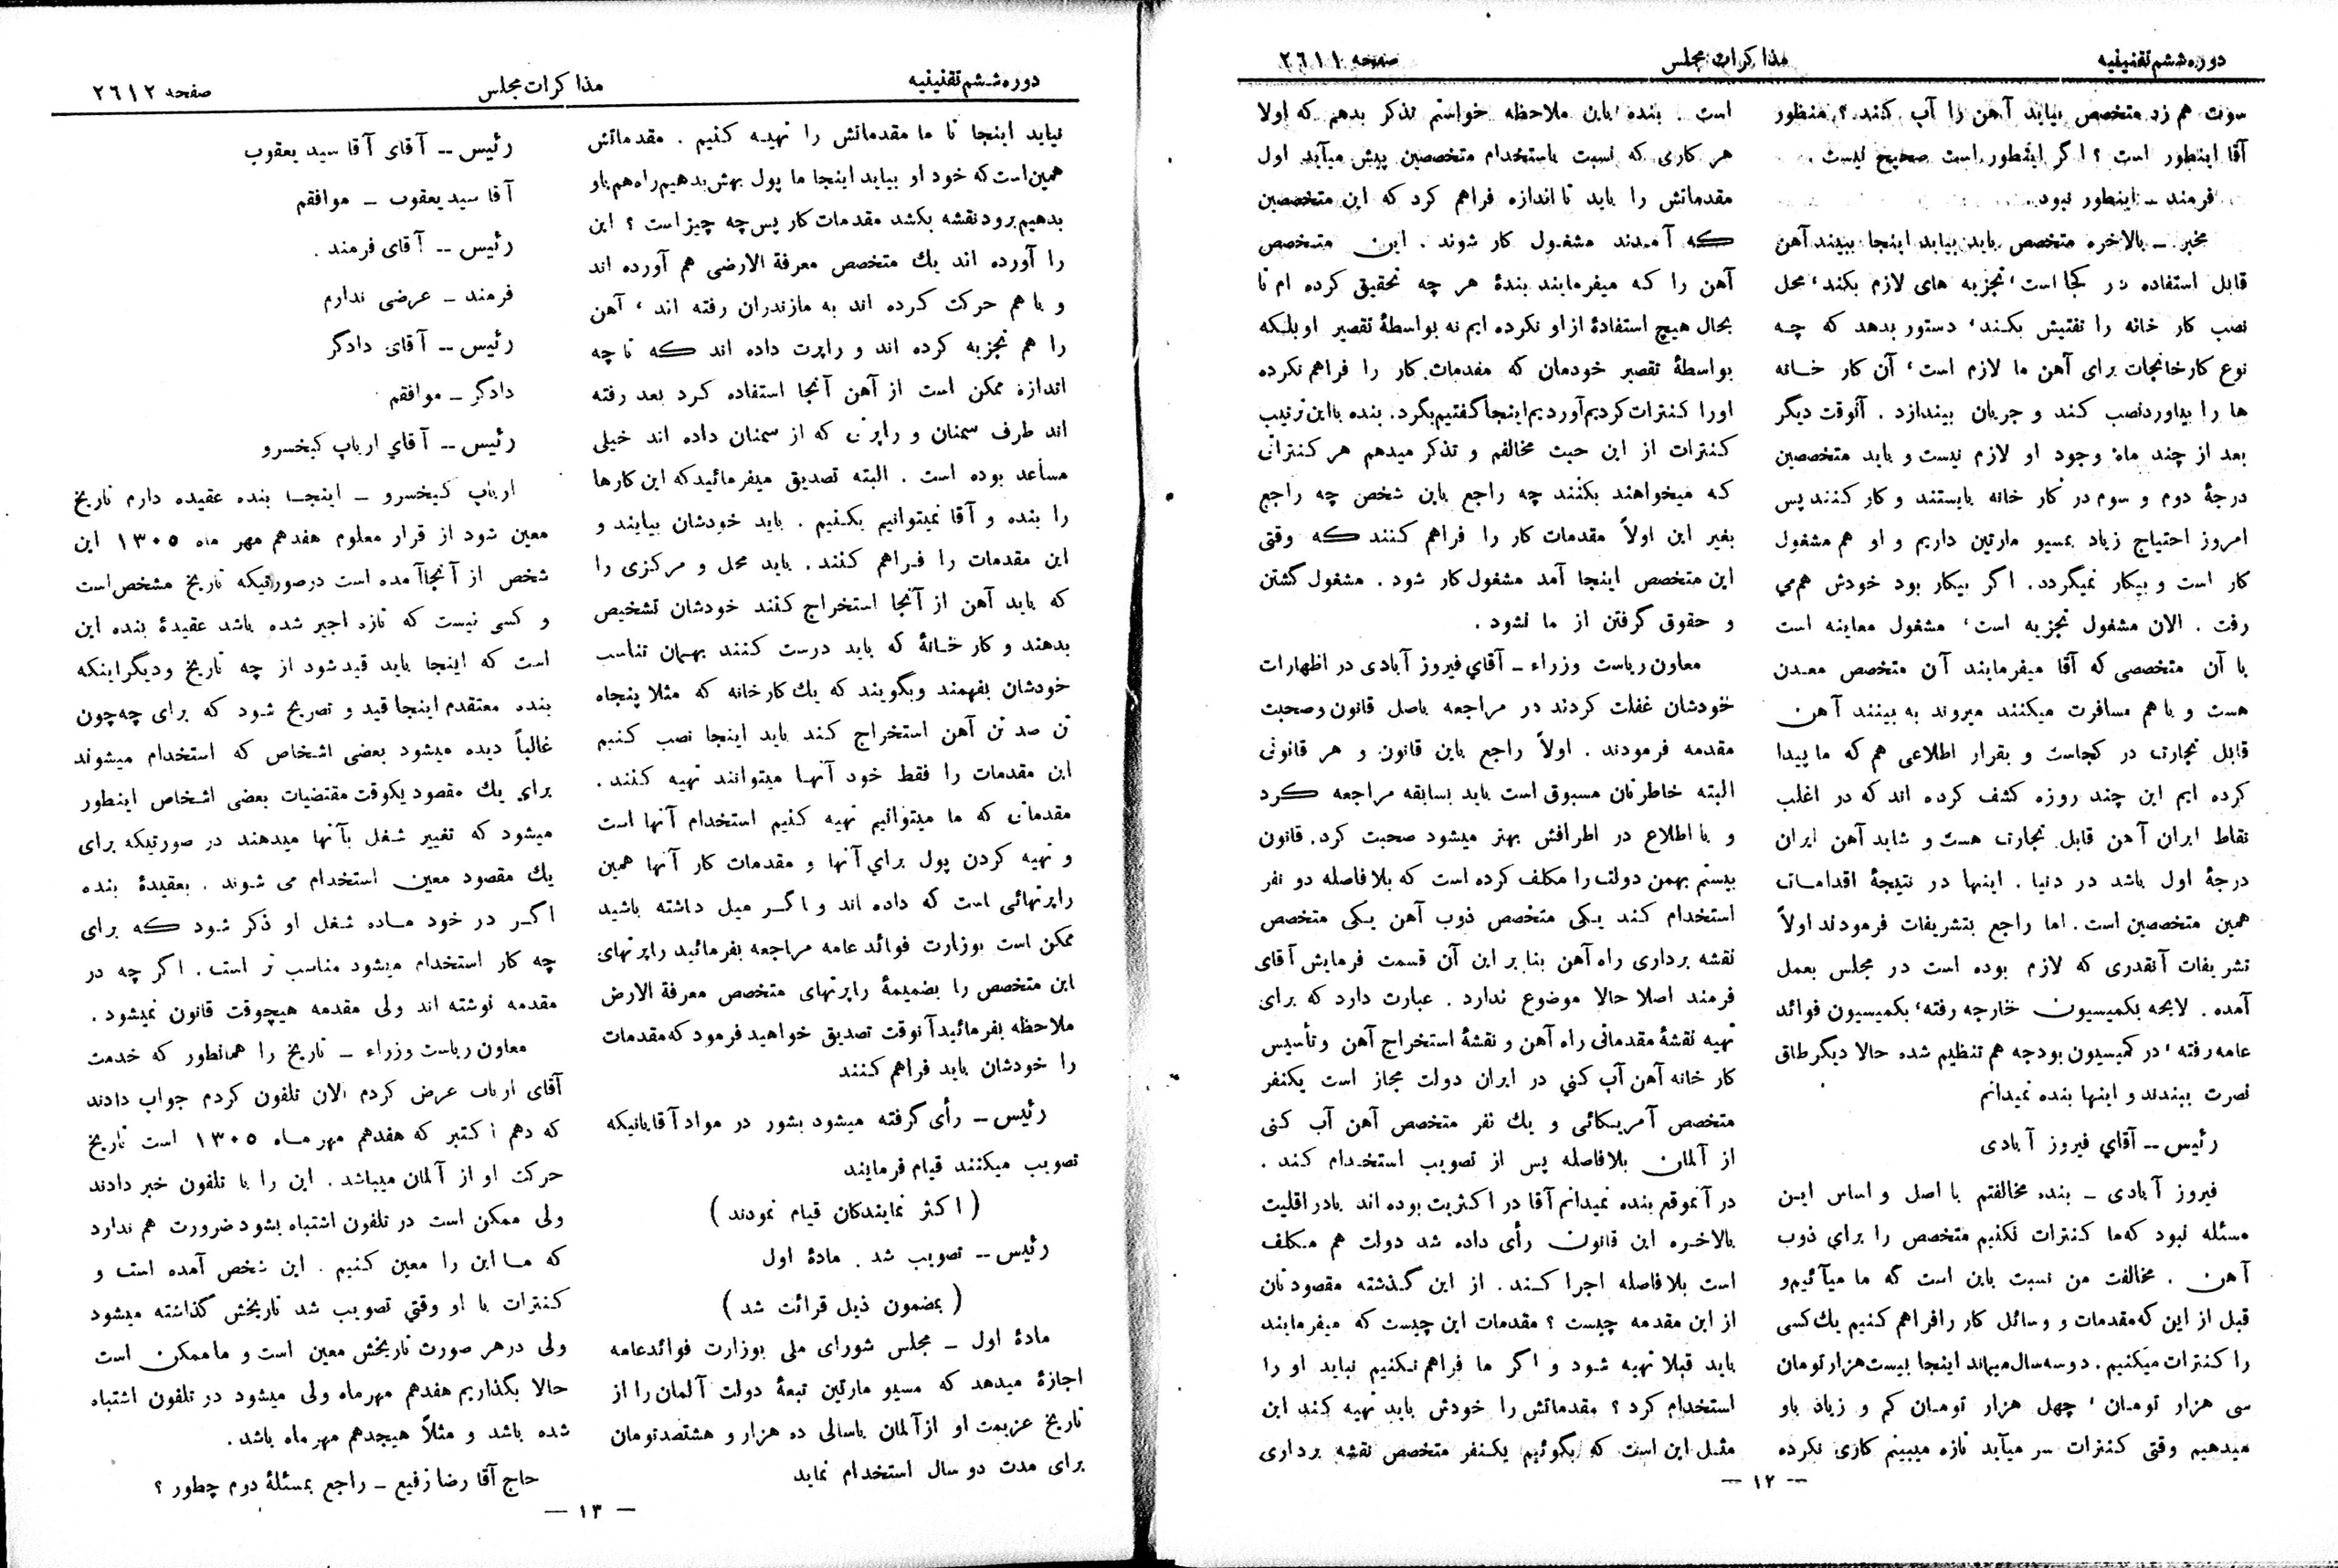 دوره ششم تقنینیه
مذاکرات مجلس
صفحه ۲٦۱۱
سوت هم زد متخصص بیاید آهن را آب کنند؟ منظور
آقا اینطور است؟ اگر اینطور است صحیح نیست.
فرمند ــ اینطور نبود.
مخبر ــ بالاخره متخصص باید بیاید اینجا ببیند آهن
قابل استفاده در کجا است، تجزیه های لازم بکند، محل
نصب کار خانه را تفتیش بکند، دستور بدهد که چه
نوع کارخانجات برای آهن ما لازم است، آن کار خانه
ها را بیاورد نصب کند و جریان بیندازد. آنوقت دیگر
بعد از چند ماه وجود او لازم نیست و باید متخصصین
درجهٔ دوم و سوم در کار خانه بایستند و کار کنند پس
امروز احتیاج زیاد بمسیو مارتین داریم و او هم مشغول
کار است و بیکار نمیگردد. اگر بیکار بود خودش هم می
رفت. الان مشغول تجزیه است، مشغول معاینه است
با آن متخصصی که آقا میفرمایند آن متخصص معدن
هست و با هم مسافرت میکنند میروند به بینند آهن
قابل تجارت در کجاست و بقرار اطلاعی هم که ما پیدا
کرده ایم این چند روزه کشف کرده اند که در اغلب
نقاط ایران آهن قابل تجارت هست و شاید آهن ایران
درجهٔ اول باشد در دنیا. اینها در نتیجهٔ اقدامات
همین متخصصین است. اما راجع بتشریفات فرمودند اولاً
تشریفات آنقدری که لازم بوده است در مجلس بعمل
آمده. لایحه بکمیسیون خارجه رفته، بکمیسیون فوائد
عامه رفته، در کمیسیون بودجه هم تنظیم شده حالا دیگر طاق
نصرت ببندند و اینها بنده نمیدانم
رئیس ــ آقای فیروز آبادی
فیروز آبادی ــ بنده مخالفتم با اصل و اساس این
مسئله نبود که ما کنترات نکنیم متخصص را برای ذوب
آهن. مخالفت من نسبت باین است که ما میآئیم و
قبل از این که مقدمات و وسائل کار را فراهم کنیم یك کسی
را کنترات میکنیم. دو سه سال میماند اینجا بیست هزار تومان
سی هزار تومان، چهل هزار تومان کم و زیاد باو
میدهیم وقتی کنترات سر میآید تازه میبینم کاری نکرده
است. بنده باین ملاحظه خواستم تذکر بدهم که اولا
هر کاری که نسبت باستخدام متخصصین پیش میآید اول
مقدماتش را باید تا اندازه فراهم کرد که این متخصصین
که آمدند مشغول کار شوند. این متخصص
آهن را که میفرمایند بندهٔ هر چه تحقیق کرده ام تا
بحال هیچ استفادهٔ از او نکرده ایم نه بواسطهٔ تقصیر او بلکه
بواسطهٔ تقصیر خودمان که مقدمات کار را فراهم نکرده
او را کنترات کردیم آوردیم اینجا گفتیم بگرد. بنده با این ترتیب
کنترات از این حیث مخالفم و تذکر میدهم هر کنتراتی
که میخواهند بکنند چه راجع باین شخص چه راجع
بغیر این اولاً مقدمات کار را فراهم کنند که وقتی
این متخصص اینجا آمد مشغول کار شود. مشغول گشتن
و حقوق گرفتن از ما نشود.
معاون ریاست وزراء ــ آقای فیروز آبادی در اظهارات
خودشان غفلت کردند در مراجعه باصل قانون و صحبت
مقدمه فرمودند. اولاً راجع باین قانون و هر قانونی
البته خاطرتان مسبوق است باید بسابقه مراجعه کرد
و با اطلاع در اطرافش بهتر میشود صحبت کرد. قانون
بیستم بهمن دولت را مکلف کرده است که بلافاصله دو نفر
استخدام کند یکی متخصص ذوب آهن یکی متخصص
نقشه برداری راه آهن بنا بر این آن قسمت فرمایش آقای
فرمند اصلا حالا موضوع ندارد. عبارت دارد که برای
تهیه نقشهٔ مقدماتی راه آهن و نقشهٔ استخراج آهن و تأسیس
کار خانه آهن آب کنی در ایران دولت مجاز است یکنفر
متخصص آمریکائی و یك نفر متخصص آهن آب کنی
از آلمان بلافاصله پس از تصویب استخدام کند.
در آنموقع بنده نمیدانم آقا در اکثریت بوده اند یا در اقلیت
بالاخره این قانون رأی داده شد دولت هم مکلف
است بلافاصله اجرا کند. از این گذشته مقصودتان
از این مقدمه چیست؟ مقدمات این چیست که میفرمایند
باید قبلا تهیه شود و اگر ما فراهم نکنیم نباید او را
استخدام کرد؟ مقدماتش را خودش باید تهیه کند این
مثل این است که بگوئیم یکنفر متخصص نقشه برداری
ــ ۱۲ ــ
دوره ششم تقنینیه
مذاکرات مجلس
صفحه ۲٦۱۲
نیاید اینجا تا ما مقدماتش را تهیه کنیم. مقدماتش
همین است که خود او بیاید اینجا ما پول بهش بدهیم راه هم باو
بدهیم برود نقشه بکشد مقدمات کار پس چه چیز است؟ این
را آورده اند یك متخصص معرفة الارضی هم آورده اند
و با هم حرکت کرده اند به مازندران رفته اند، آهن
را هم تجزیه کرده اند و راپرت داده اند که تا چه
اندازه ممکن است از آهن آنجا استفاده کرد بعد رفته
اند طرف سمنان و راپرتی که از سمنان داده اند خیلی
مساعد بوده است. البته تصدیق میفرمائید که این کارها
را بنده و آقا نمیتوانیم بکنیم. باید خودشان بیایند و
این مقدمات را فراهم کنند. باید محل و مرکزی را
که باید آهن از آنجا استخراج کنند خودشان تشخیص
بدهند و کار خانهٔ که باید درست کنند بهمان تناسب
خودشان بفهمند و بگویند که یك کارخانه که مثلا پنجاه
تن صد تن آهن استخراج کند باید اینجا نصب کنیم
این مقدمات را فقط خود آنها میتوانند تهیه کنند.
مقدماتی که ما میتوانیم تهیه کنیم استخدام آنها است
و تهیه کردن پول برای آنها و مقدمات کار آنها همین
راپرتهائی است که داده اند و اگر میل داشته باشید
ممکن است بوزارت فوائد عامه مراجعه بفرمائید راپرتهای
این متخصص را بضمیمهٔ راپرتهای متخصص معرفة الارض
ملاحظه بفرمائید آنوقت تصدیق خواهید فرمود که مقدمات
را خودشان باید فراهم کنند
رئیس ــ رأی گرفته میشود بشور در مواد آقایانیکه
تصویب میکنند قیام فرمایند
(اکثر نمایندکان قیام نمودند)
رئیس ــ تصویب شد. مادهٔ اول
(بمضمون ذیل قرائت شد)
مادهٔ اول ــ مجلس شورای ملی بوزارت فوائد عامه
اجازهٔ میدهد که مسیو مارتین تبعهٔ دولت آلمان را از
تاریخ عزیمت او از آلمان باسالی ده هزار و هشتصد تومان
برای مدت دو سال استخدام نماید
رئیس ــ آقای آقا سید یعقوب
آقا سید یعقوب ــ موافقم
رئیس ــ آقای فرمند.
فرمند ــ عرضی ندارم
رئیس ــ آقای دادگر
دادگر ــ موافقم
رئیس ــ آقای ارباب کیخسرو
ارباب کیخسرو ــ اینجا بنده عقیده دارم تاریخ
معین شود از قرار معلوم هفدهم مهر ماه ۱۳۰۵ این
شخص از آنجا آمده است درصورتیکه تاریخ مشخص است
و کسی نیست که تازه اجیر شده باشد عقیدهٔ بنده این
است که اینجا باید قید شود از چه تاریخ و دیگر اینکه
بنده معتقدم اینجا قید و تصریح شود که برای چه چون
غالباً دیده میشود بعضی اشخاص که استخدام میشوند
برای یك مقصود یکوقت مقتضیات بعضی اشخاص اینطور
میشود که تغییر شغل بآنها میدهند در صورتیکه برای
یك مقصود معین استخدام می شوند. بعقیدهٔ بنده
اگر در خود ماده شغل او ذکر شود که برای
چه کار استخدام میشود مناسب تر است. اگر چه در
مقدمه نوشته اند ولی مقدمه هیچوقت قانون نمیشود.
معاون ریاست وزراء ــ تاریخ را همانطور که خدمت
آقای ارباب عرض کردم الان تلفون کردم جواب دادند
که دهم اکتبر که هفدهم مهر ماه ۱۳۰۵ است تاریخ
حرکت او از آلمان میباشد. این را با تلفون خبر دادند
ولی ممکن است در تلفون اشتباه بشود ضرورت هم ندارد
که ما این را معین کنیم. این شخص آمده است و
کنترات با او وقتی تصویب شد تاریخش گذاشته میشود
ولی درهر صورت تاریخش معین است و ما ممکن است
حالا بگذاریم هفدهم مهر ماه ولی میشود در تلفون اشتباه
شده باشد و مثلاً هیجدهم مهر ماه باشد.
حاج آقا رضا رفیع ــ راجع بمسئلهٔ دوم چطور؟
ــ ۱۳ ــ